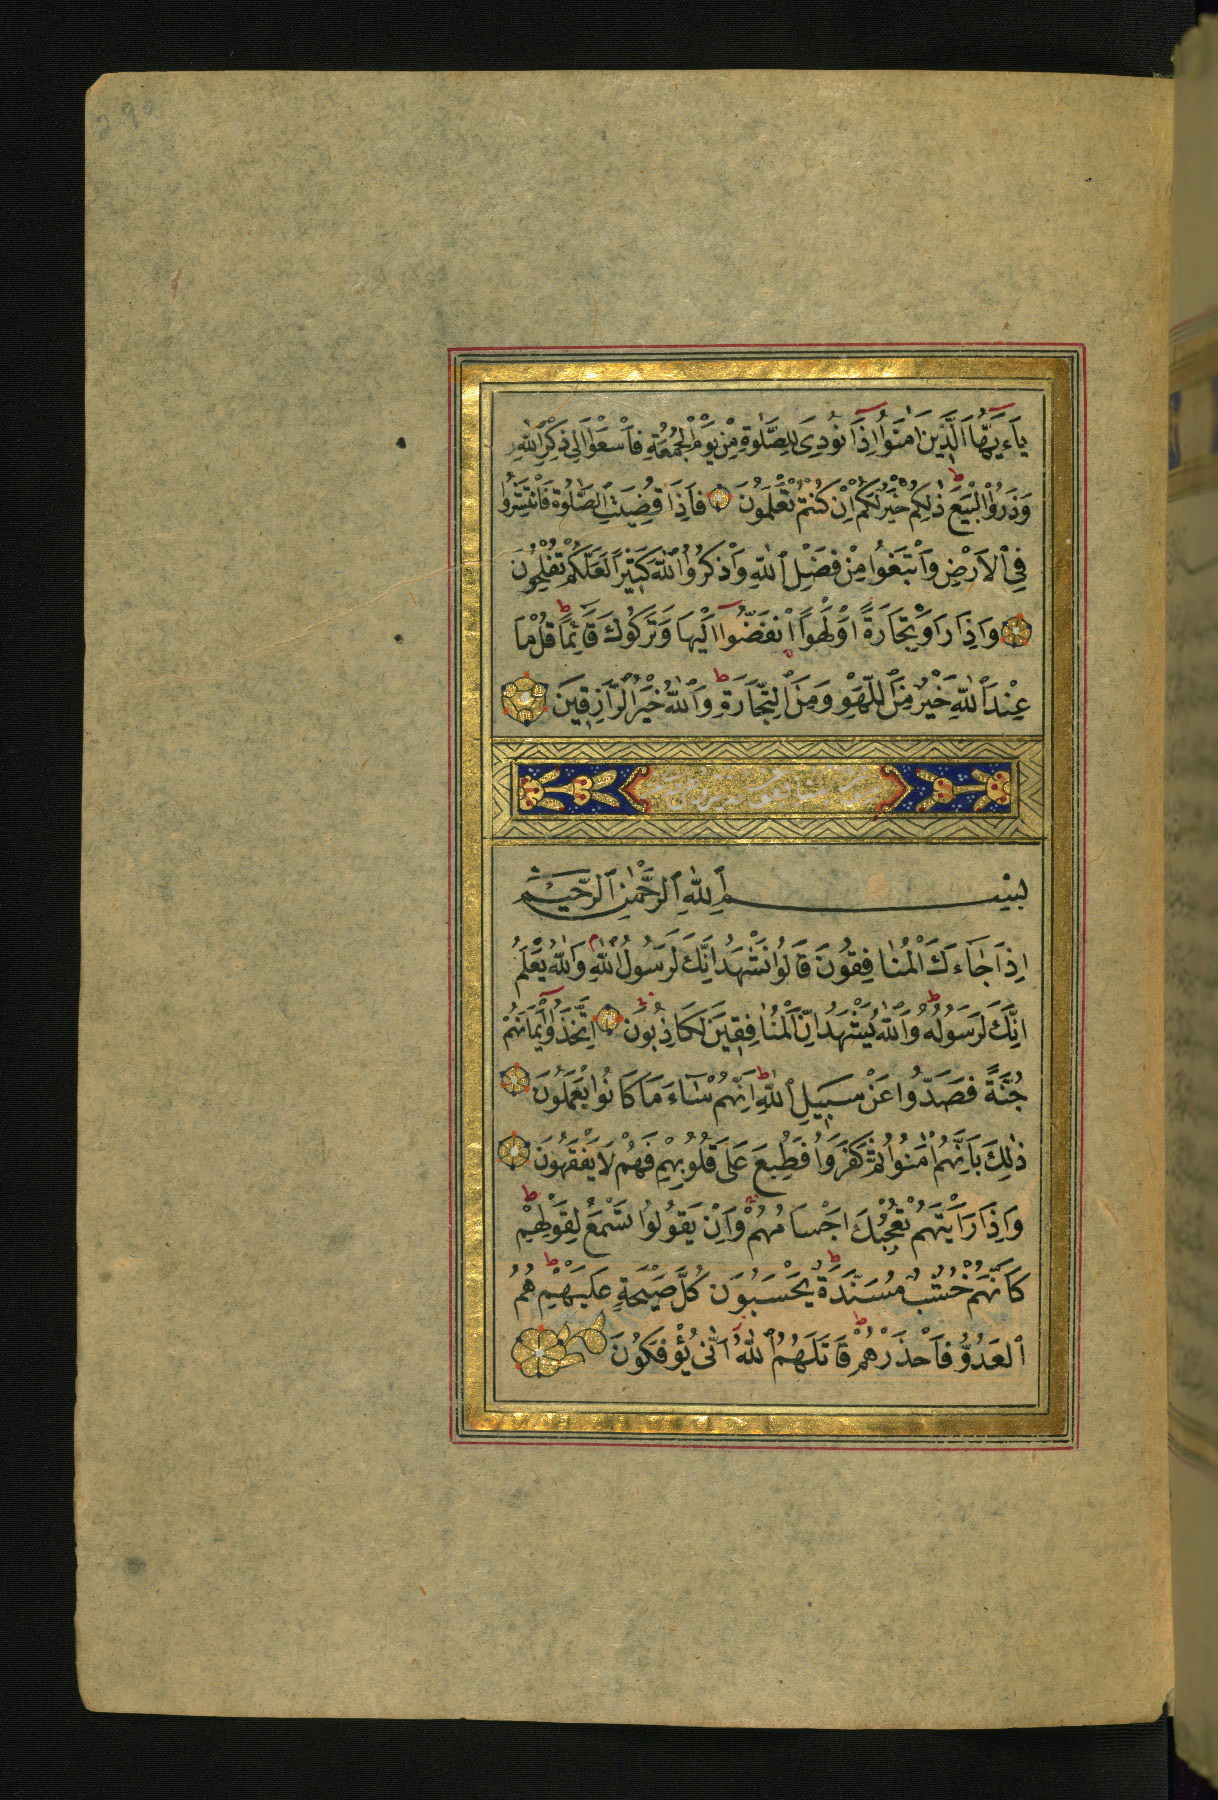 يَاءَيُّهَا الَّذِينَ اٰمَنُوا اِذَا نُودِىَ لِلصَّلٰوةِ مِنْ يَوْمِ الْجُمُعَةِ فَاسْعَوْا اِلٰى ذِكْرِ اللّٰهِ
وَذَرُوا الْبَيْعَ ذٰلِكُمْ خَيْرٌ لَكُمْ اِنْ كُنْتُمْ تَعْلَمُونَ فَاِذَا قُضِيَتِ الصَّلٰوةُ فَانْتَشِرُوا
فِى الْاَرْضِ وَابْتَغُوا مِنْ فَضْلِ اللّٰهِ وَاذْكُرُوا اللّٰهَ كَثِيرًا لَعَلَّكُمْ تُفْلِحُونَ
وَاِذَا رَاَوْا تِجَارَةً اَوْ لَهْوًا انْفَضُّوا اِلَيْهَا وَتَرَكُوكَ قَائِمًا قُلْ مَا
عِنْدَ اللّٰهِ خَيْرٌ مِنَ اللَّهْوِ وَمِنَ التِّجَارَةِ وَاللّٰهُ خَيْرُ الرَّازِقِينَ
بِسْمِ اللّٰهِ الرَّحْمٰنِ الرَّحِيمِ
اِذَا جَاءَكَ الْمُنَافِقُونَ قَالُوا نَشْهَدُ اِنَّكَ لَرَسُولُ اللّٰهِ وَاللّٰهُ يَعْلَمُ
اِنَّكَ لَرَسُولُهُ وَاللّٰهُ يَشْهَدُ اِنَّ الْمُنَافِقِينَ لَكَاذِبُونَ اِتَّخَذُوا اَيْمَانَهُمْ
جُنَّةً فَصَدُّوا عَنْ سَبِيلِ اللّٰهِ اِنَّهُمْ سَاءَ مَا كَانُوا يَعْمَلُونَ
ذٰلِكَ بِاَنَّهُمْ اٰمَنُوا ثُمَّ كَفَرُوا فَطُبِعَ عَلٰى قُلُوبِهِمْ فَهُمْ لَا يَفْقَهُونَ
وَاِذَا رَاَيْتَهُمْ تُعْجِبُكَ اَجْسَامُهُمْ وَاِنْ يَقُولُوا تَسْمَعْ لِقَوْلِهِمْ
كَاَنَّهُمْ خُشُبٌ مُسَنَّدَةٌ يَحْسَبُونَ كُلَّ صَيْحَةٍ عَلَيْهِمْ هُمُ
الْعَدُوُّ فَاحْذَرْهُمْ قَاتَلَهُمُ اللّٰهُ اَنّٰى يُؤْفَكُونَ